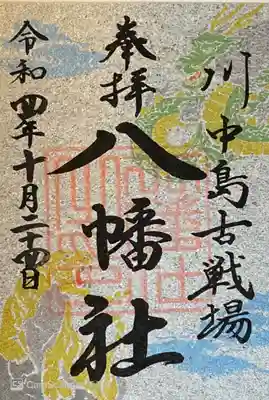 川中島古戦場
奉拝
八幡社
令和四年十月二十四日